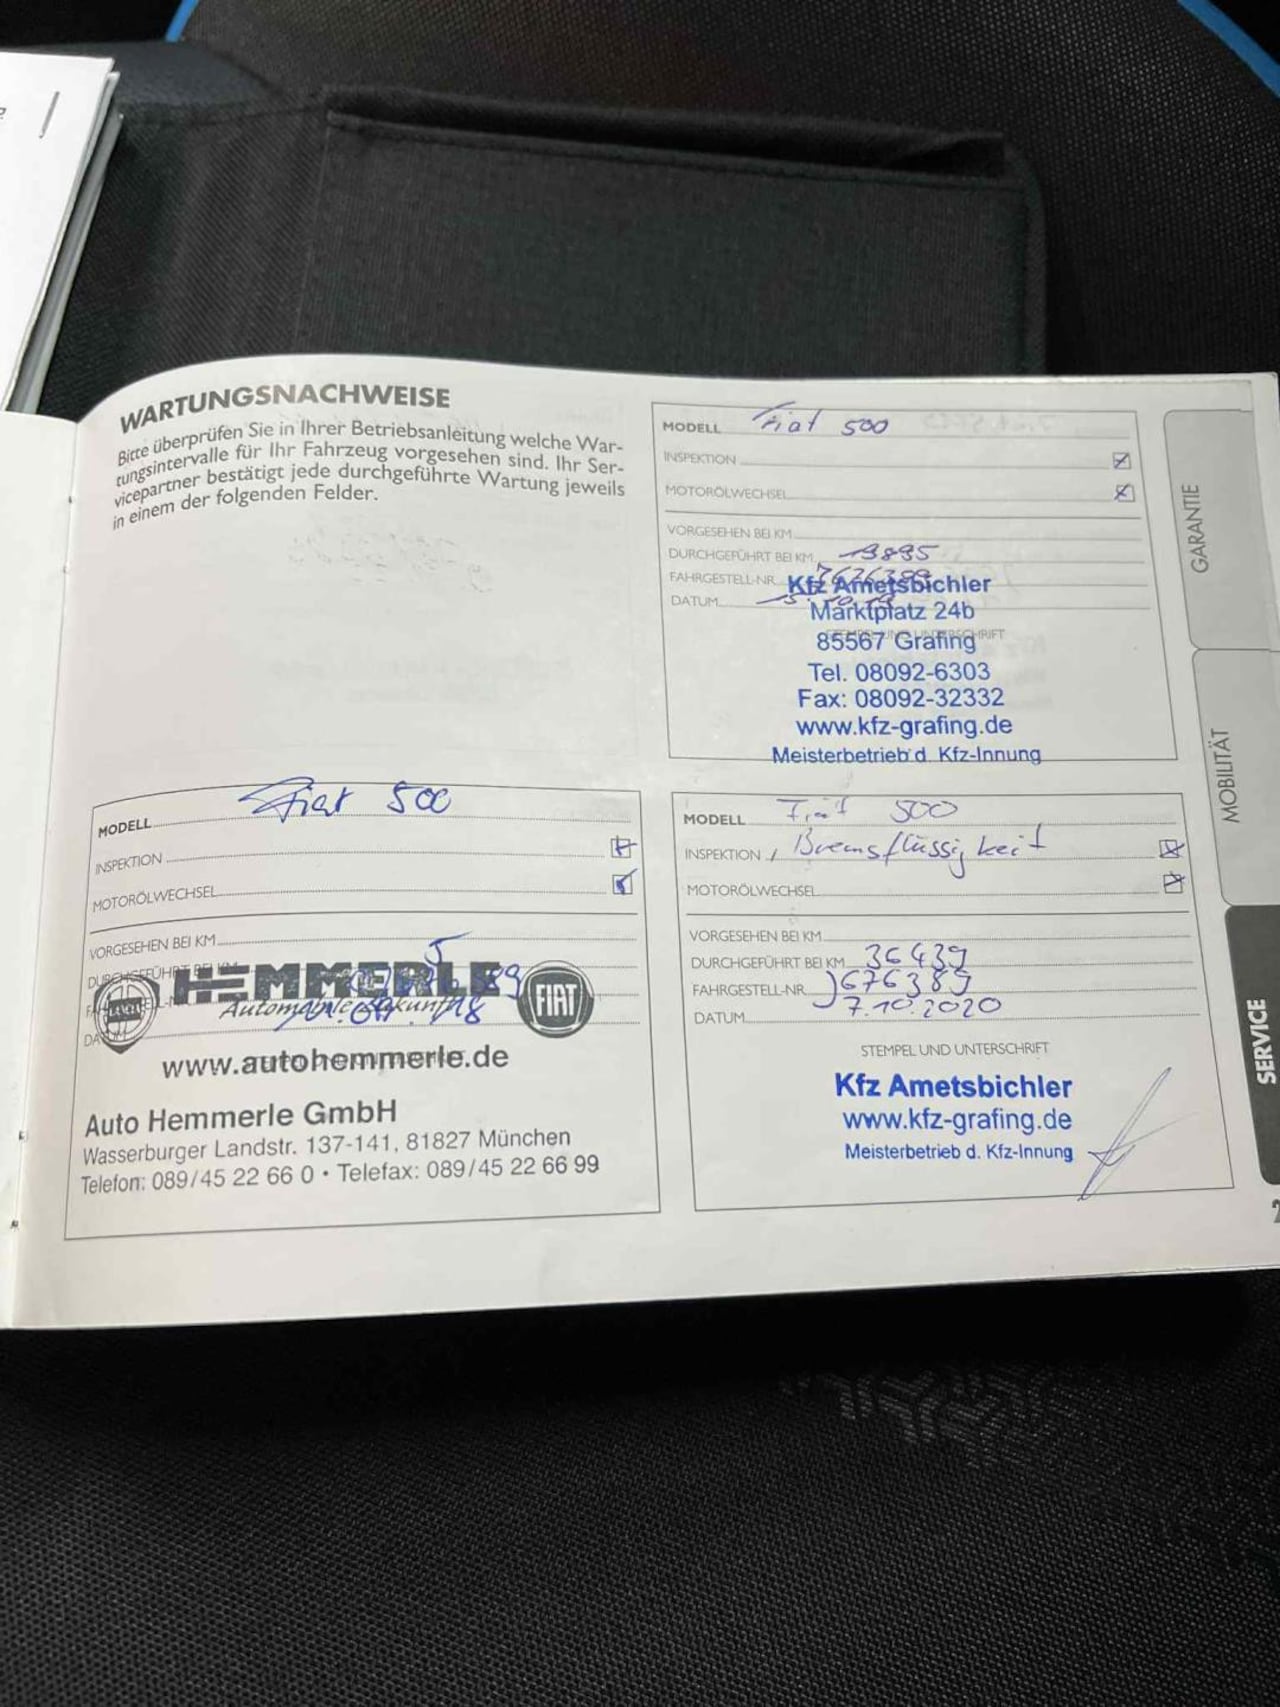 WARTUNGSNACHWEISE
Bitte überprüfen Sie in Ihrer Betriebsanleitung welche War-
tungsintervalle für Ihr Fahrzeug vorgesehen sind. Ihr Ser-
vicepartner bestätigt jede durchgeführte Wartung jeweils
in einem der folgenden Felder.
MODELL Fiat 500
INSPEKTION
MOTORÖLWECHSEL
VORGESEHEN BEI KM
DURCHGEFÜHRT BEI KM 19895
FAHRGESTELL-NR.
DATUM
STEMPEL UND UNTERSCHRIFT
Kfz Ametsbichler
Marktplatz 24b
85567 Grafing
Tel. 08092-6303
Fax: 08092-32332
www.kfz-grafing.de
Meisterbetrieb d. Kfz-Innung
MODELL Fiat 500
INSPEKTION
MOTORÖLWECHSEL
VORGESEHEN BEI KM
DURCHGEFÜHRT BEI KM
HEMMERLE
LANCIA
FIAT
www.autohemmerle.de
Auto Hemmerle GmbH
Wasserburger Landstr. 137-141, 81827 München
Telefon: 089/45 22 66 0 • Telefax: 089/45 22 66 99
MODELL Fiat 500
INSPEKTION / Bremsflüssigkeit
MOTORÖLWECHSEL
VORGESEHEN BEI KM
DURCHGEFÜHRT BEI KM 36439
FAHRGESTELL-NR. J676389
DATUM 7.10.2020
STEMPEL UND UNTERSCHRIFT
Kfz Ametsbichler
www.kfz-grafing.de
Meisterbetrieb d. Kfz-Innung
GARANTIE
MOBILITÄT
SERVICE